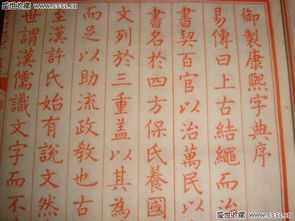 盛世收藏 www.sssc.cn
御製康熙字典序
易傳曰上古結繩而治
書契百官以治萬民以
書名於四方保氏養國
文列於三重盖以其為
而足以助流政教也古
至漢許氏始有說文然
世謂漢儒識文字而不
盛世收藏 www.sssc.cn